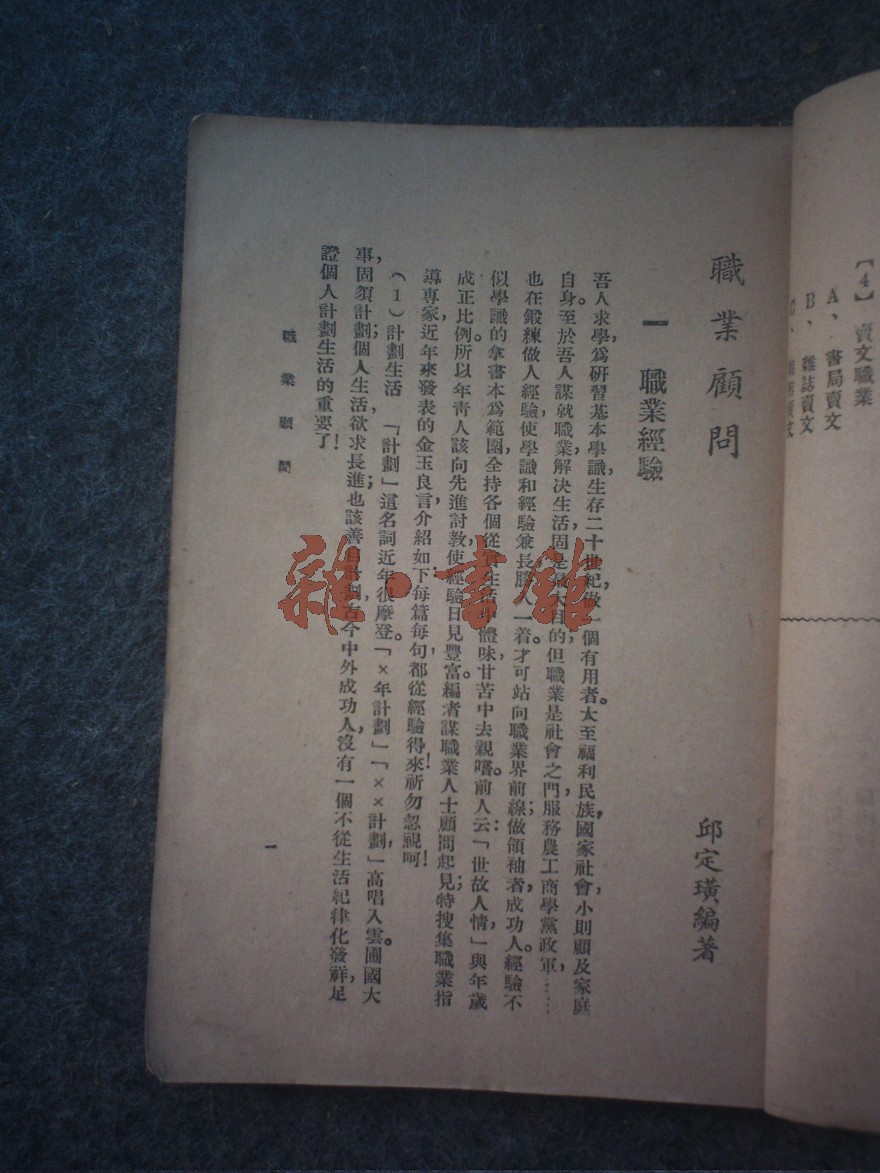 【4】 賣文職業
A、書局賣文
B、雜誌賣文
職業顧問
邱定璜編著
一 職業經驗
吾人求學，爲研習基本學識，生存二十世紀，做一個有用者。太至福利民族，國家社會，小則顧及家庭
自身。至於吾人謀就職業，解決生活，固是最大目的；但職業是社會之門，服務農工商學黨政軍……
也在鍛練做人經驗，使學識和經驗兼長，勝人一着。才可站向職業界前線，做領袖者；成功人。經驗不
似學識的拿書本爲範圍，全持各個從實生活中體味，甘苦中去親嚐。前人云：「世故人情，」與年歲
成正比例。所以年靑人該向先進討敎，使經驗日見豐富。編者謀職業人士顧問起見；特搜集職業指
導專家，近年來發表的金玉良言，介紹如下；每篇每句，都從經驗得來！祈勿忽視呵！
（1）計劃生活 「計劃」這名詞近年很摩登。「×年計劃」「××計劃，」高唱入雲。圃國大
事，固須計劃；個人生活，欲求長進；也該善自計劃，古今中外成功人，沒有一個不從生活紀律化發祥，足
證個人計劃生活的重要了！
職業顧問
一
雜·書館